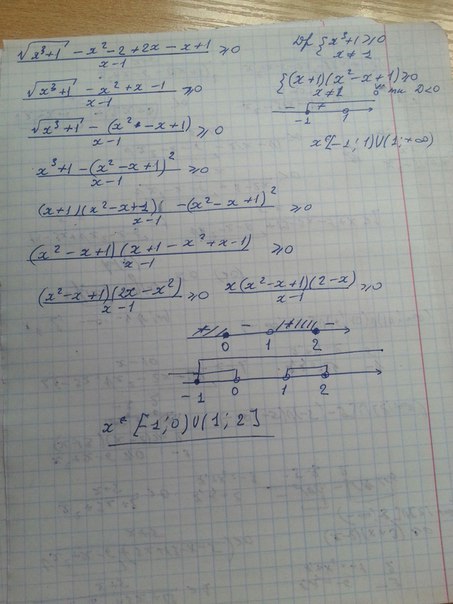 (√(x³+1) - x² - 2 + 2x - x + 1)/(x-1) ≥ 0
Df { x³+1 ≥ 0
x ≠ 1
(√(x³+1) - x² + x - 1)/(x-1) ≥ 0
{ (x+1)(x²-x+1) ≥ 0
x ≠ 1
D<0
- + -1 1
(√(x³+1) - (x² - x+1))/(x-1) ≥ 0
x∈[-1; 1)U(1; +∞)
(x³+1 - (x²-x+1)²)/(x-1) ≥ 0
((x+1)(x²-x+1) - (x²-x+1)²)/(x-1) ≥ 0
((x²-x+1)(x+1-x²+x-1))/(x-1) ≥ 0
((x²-x+1)(2x-x²))/(x-1) ≥ 0 (x(x²-x+1)(2-x))/(x-1) ≥ 0
+ - + -
0 1 2
-1 0 1 2
x∈ [-1; 0)U(1; 2]